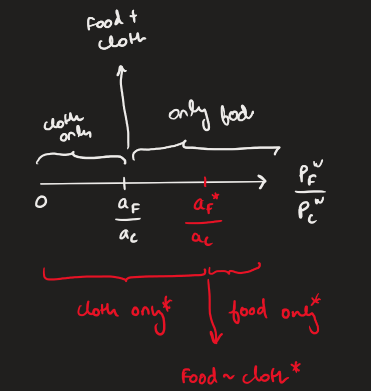 Food +
cloth
cloth
only
only food
0
a_F
a_c
a_F*
a_c
P_F^w
P_c^w
cloth only*
food only*
Food ~ cloth*